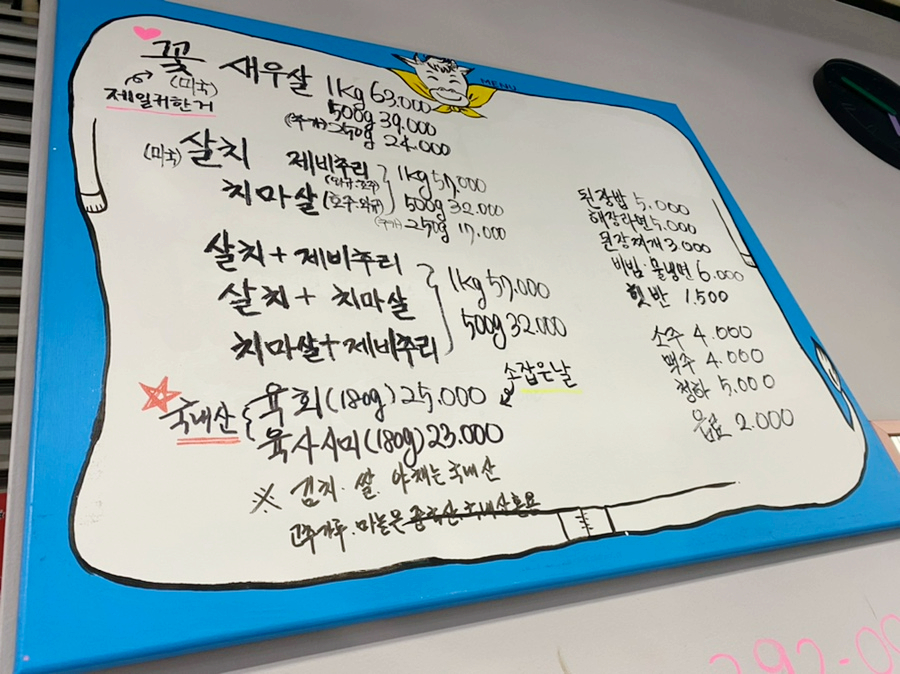 MENU
꽃 새우살 1kg 63.000
(미국)
제일귀한거
500g 39.000
(추가) 250g 24.000
(미국) 살치 제비추리 1kg 57,000
(와규.호주)
치마살 (호주.와규) 500g 32.000
(추가) 250g 17,000
살치 + 제비추리
살치 + 치마살 1kg 57,000
치마살+제비추리 500g 32.000
소잡은날
국내산 육회 (180g) 25,000
육사시미 (180g) 23.000
※ 김치. 쌀. 야채는 국내산
고추가루. 마늘은 중국산 국내산혼용
된장밥 5.000
해장라면 5,000
된장찌개 3.000
비빔 물냉면 6.000
햇반 1.500
소주 4.000
맥주 4.000
청하 5,000
음료 2.000